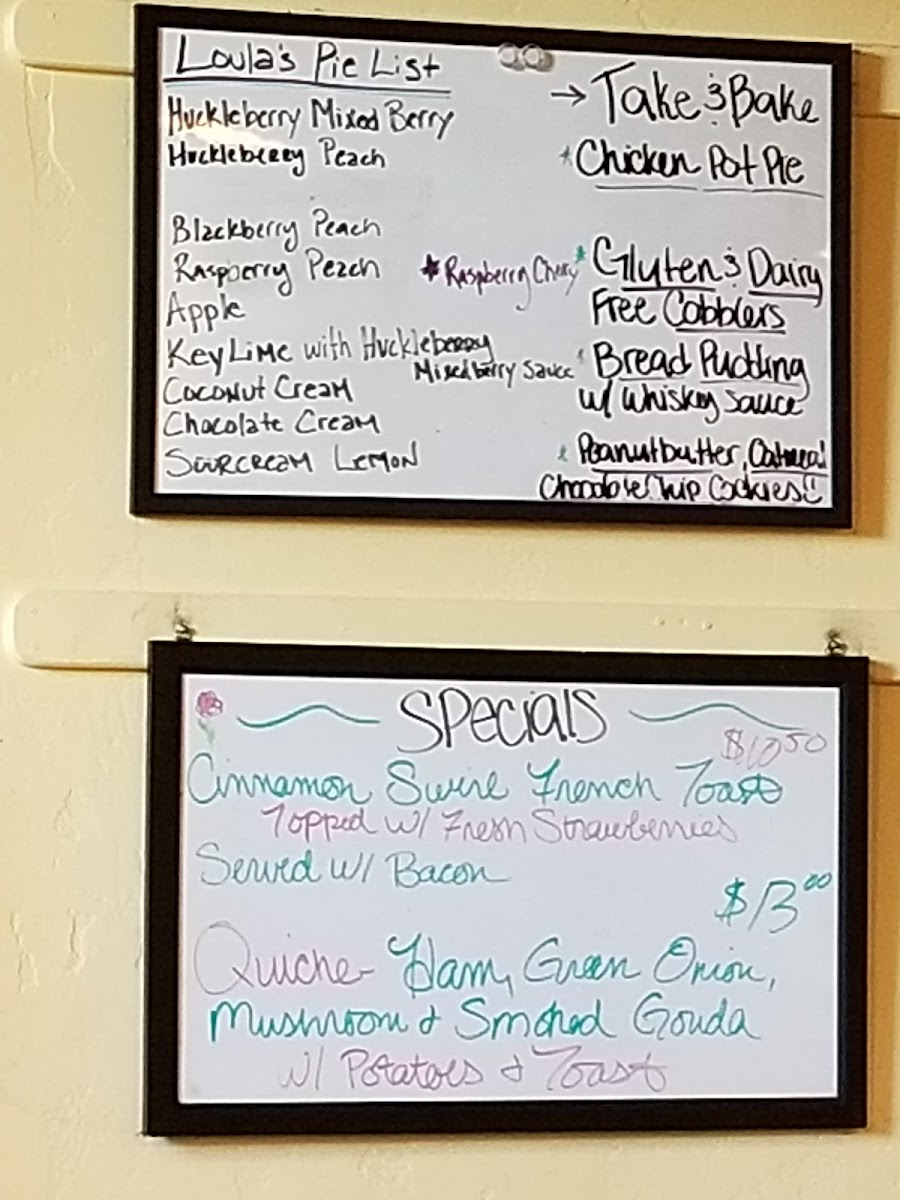 Loula's Pie List
Huckleberry Mixed Berry
Huckleberry Peach
Blackberry Peach
Raspberry Peach
Apple
Key Lime with Huckleberry
Mixedberry Sauce
Coconut Cream
Chocolate Cream
Sourcream Lemon
→ Take & Bake
* Chicken Pot Pie
* Raspberry Cherry
* Gluten & Dairy
Free Cobblers
* Bread Pudding
w/ Whiskey Sauce
* Peanutbutter, Oatmeal
Chocolate Chip Cookies
Specials
$10.50
Cinnamon Swirl French Toast
Topped w/ Fresh Strawberries
Served w/ Bacon
$13.00
Quiche - Ham, Green Onion,
Mushroom & Smoked Gouda
w/ Potatoes & Toast